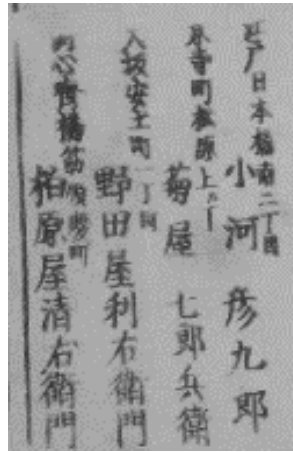 江戸日本橋南二丁目
小河彦九郎
京寺町松原上ル丁
菊屋七郎兵衛
大坂安土町一丁目
野田屋利右衛門
同心斎橋筋順慶町
柏原屋清右衛門